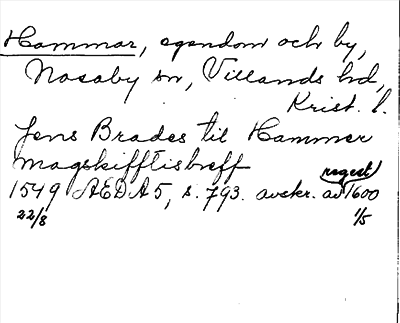 Hammar, egendom och by,
Nosaby sn, Villands hd,
Krist. l.
Jens Brades til Hammer
magskifftisbreff
regest
1549 AEDA5, s. 793. avskr. av 1600
22/8 1/5